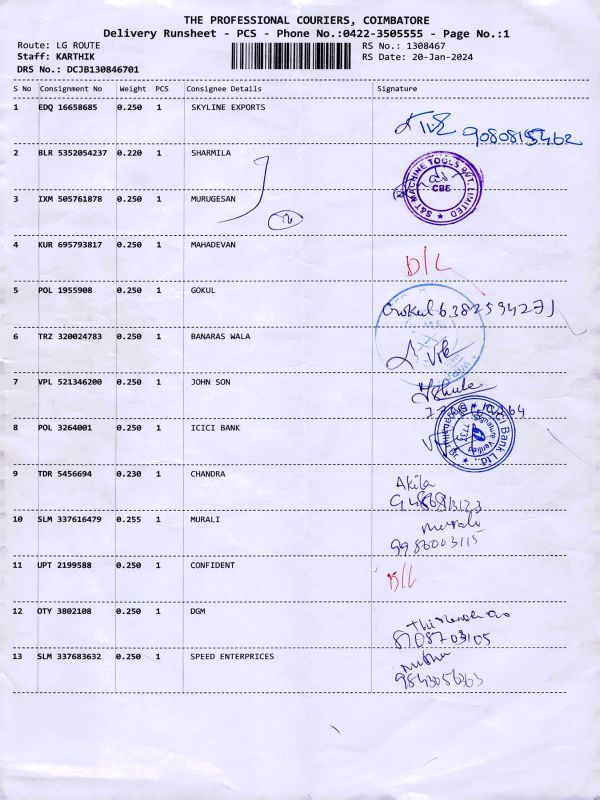 THE PROFESSIONAL COURIERS, COIMBATORE
Delivery Runsheet - PCS - Phone No.:0422-3505555 - Page No.:1
Route: LG ROUTE RS No.: 1308467
Staff: KARTHIK RS Date: 20-Jan-2024
DRS No.: DCJB130846701
S No Consignment No Weight PCS Consignee Details Signature
1 EDQ 16658685 0.250 1 SKYLINE EXPORTS
2 BLR 5352054237 0.220 1 SHARMILA
S&T MACHINE TOOLS PVT. LIMITED
CBE
3 IXM 505761878 0.250 1 MURUGESAN
4 KUR 695793817 0.250 1 MAHADEVAN
D/L
5 POL 1955908 0.250 1 GOKUL
Gokul 6382594271
6 TRZ 320024783 0.250 1 BANARAS WALA
7 VPL 521346200 0.250 1 JOHN SON
8 POL 3264001 0.250 1 ICICI BANK
ICICI Bank Ltd.
Signature Verified
9 TDR 5456694 0.230 1 CHANDRA
Akila
10 SLM 337616479 0.255 1 MURALI
Murali
9986003115
11 UPT 2199588 0.250 1 CONFIDENT
D/L
12 OTY 3802108 0.250 1 DGM
8708703105
13 SLM 337683632 0.250 1 SPEED ENTERPRICES